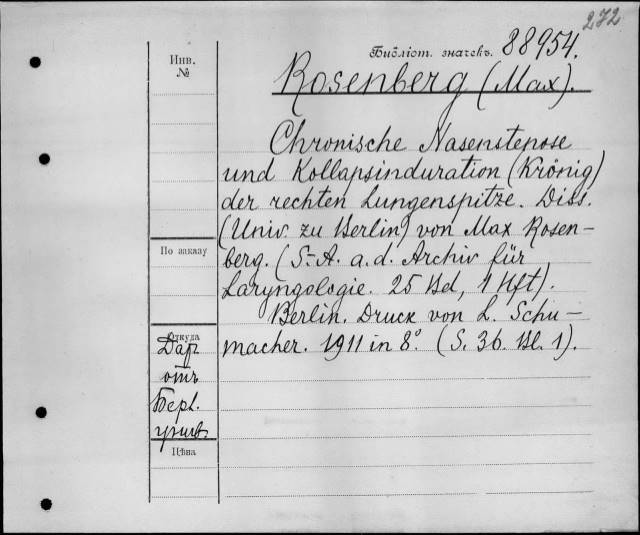 272
Библіот. значекъ. 88954.
Инв.
№
Rosenberg (Max).
Chronische Nasenstenose
und Kollapsinduration (Krönig)
der rechten Lungenspitze. Diss.
(Univ. zu Berlin) von Max Rosen-
По заказу
berg. (S.-A. a. d. Archiv für
Laryngologie. 25 Bd, 1 Hft).
Berlin. Druck von L. Schu-
macher. 1911 in 8°. (S. 36. Bl. 1).
Откуда
Дар
отъ
Берл.
унив.
Цѣна